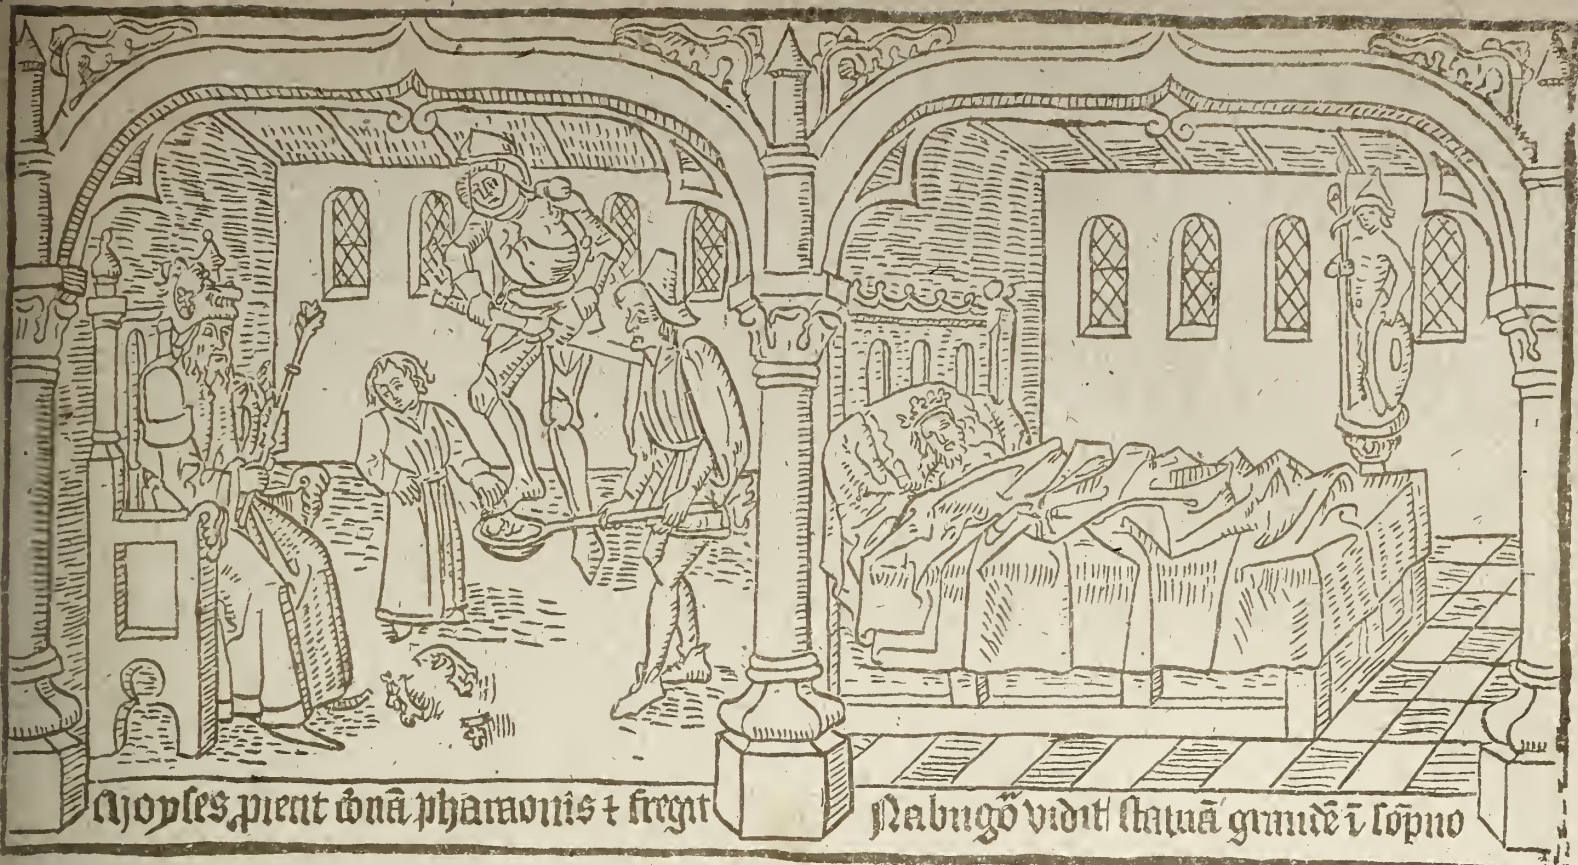 Moyses ꝓiecit coronã pharaonis ⁊ fregit
Nabugõ vidit statuã grandẽ ĩ sõpno